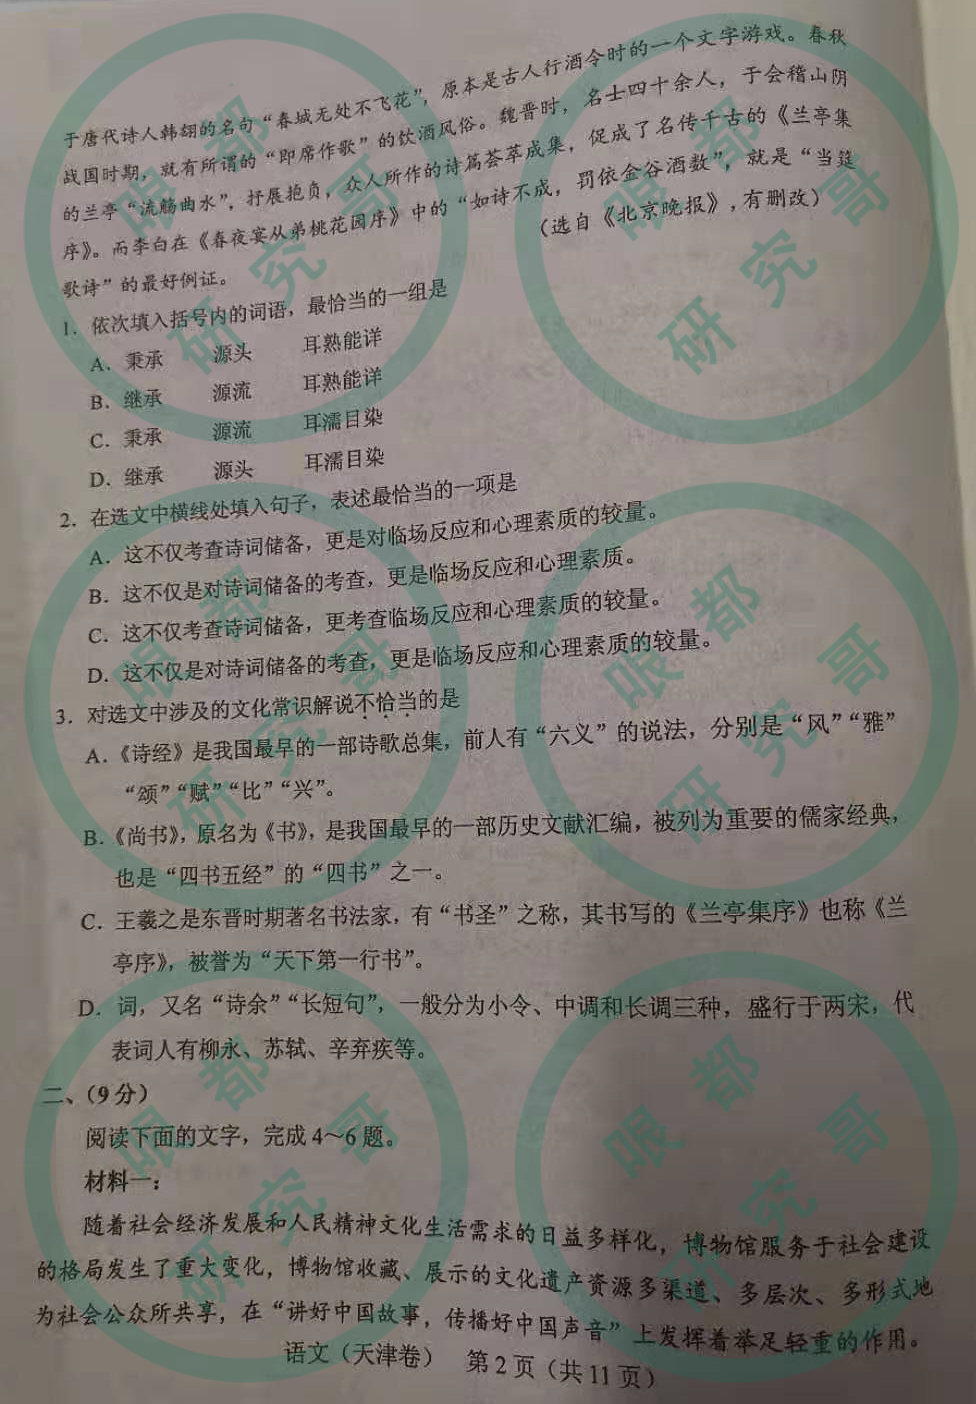 于唐代诗人韩翃的名句“春城无处不飞花”，原本是古人行酒令时的一个文字游戏。春秋
战国时期，就有所谓的“即席作歌”的饮酒风俗。魏晋时，名士四十余人，于会稽山阴
的兰亭“流觞曲水”，抒展抱负，众人所作的诗篇荟萃成集，促成了名传千古的《兰亭集
序》。而李白在《春夜宴从弟桃花园序》中的“如诗不成，罚依金谷酒数”，就是“当筵
歌诗”的最好例证。
（选自《北京晚报》，有删改）
1．依次填入括号内的词语，最恰当的一组是
A．秉承 源头 耳熟能详
B．继承 源流 耳熟能详
C．秉承 源流 耳濡目染
D．继承 源头 耳濡目染
2．在选文中横线处填入句子，表述最恰当的一项是
A．这不仅考查诗词储备，更是对临场反应和心理素质的较量。
B．这不仅是对诗词储备的考查，更是临场反应和心理素质。
C．这不仅考查诗词储备，更考查临场反应和心理素质的较量。
D．这不仅是对诗词储备的考查，更是临场反应和心理素质的较量。
3．对选文中涉及的文化常识解说不恰当的是
A．《诗经》是我国最早的一部诗歌总集，前人有“六义”的说法，分别是“风”“雅”
“颂”“赋”“比”“兴”。
B．《尚书》，原名为《书》，是我国最早的一部历史文献汇编，被列为重要的儒家经典，
也是“四书五经”的“四书”之一。
C．王羲之是东晋时期著名书法家，有“书圣”之称，其书写的《兰亭集序》也称《兰
亭序》，被誉为“天下第一行书”。
D．词，又名“诗余”“长短句”，一般分为小令、中调和长调三种，盛行于两宋，代
表词人有柳永、苏轼、辛弃疾等。
二、（9分）
阅读下面的文字，完成4～6题。
材料一：
随着社会经济发展和人民精神文化生活需求的日益多样化，博物馆服务于社会建设
的格局发生了重大变化，博物馆收藏、展示的文化遗产资源多渠道、多层次、多形式地
为社会公众所共享，在“讲好中国故事，传播好中国声音”上发挥着举足轻重的作用。
语文（天津卷） 第2页（共11页）
眼都研究哥
眼都研究哥
眼都研究哥
眼都研究哥
眼都研究哥
眼都研究哥